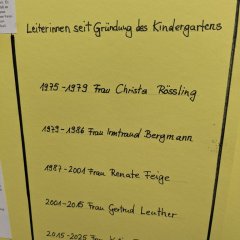 Leiterinnen seit Gründung des Kindergartens
1975-1979 Frau Christa Rössling
1979-1986 Frau Irmtraud Bergmann
1987-2001 Frau Renate Feige
2001-2015 Frau Gertrud Leuther
2015-2025 Frau